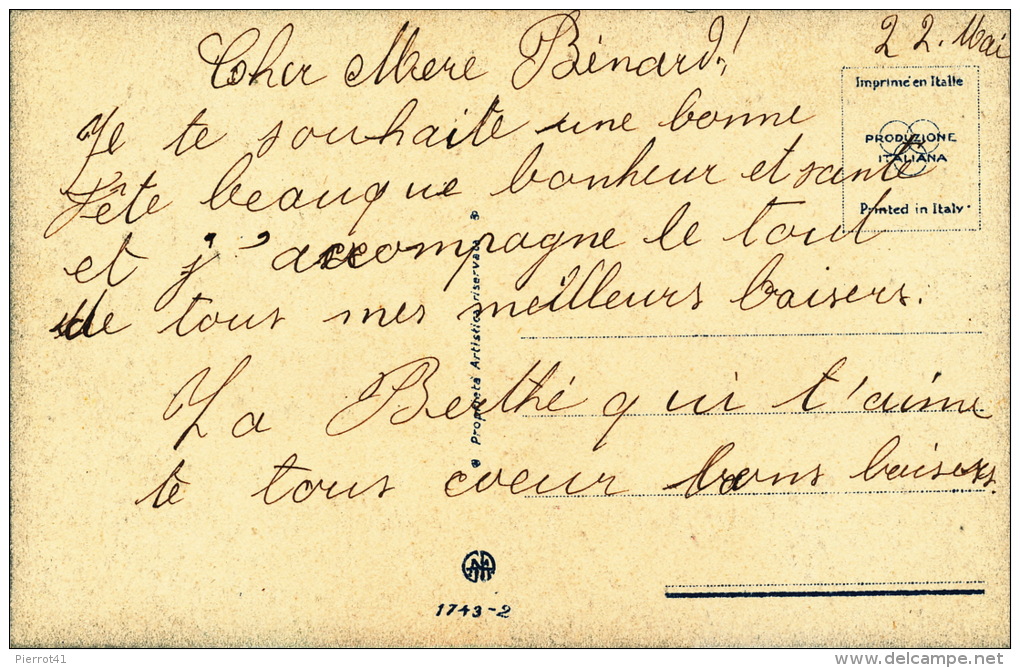 22. Mai
Cher Mere Bénard!
Je te souhaite une bonne
Fête beauque bonheur et santé
et j'accompagne le tout
de tous mes meilleurs baisers.
La Berthé qui t'aime
te tous coeur bons baisers.
Imprimé en Italie
PRODUZIONE
ITALIANA
Printed in Italy
Proprietà Artistica riservata
1743-2
Pierrot41
www.delcampe.net